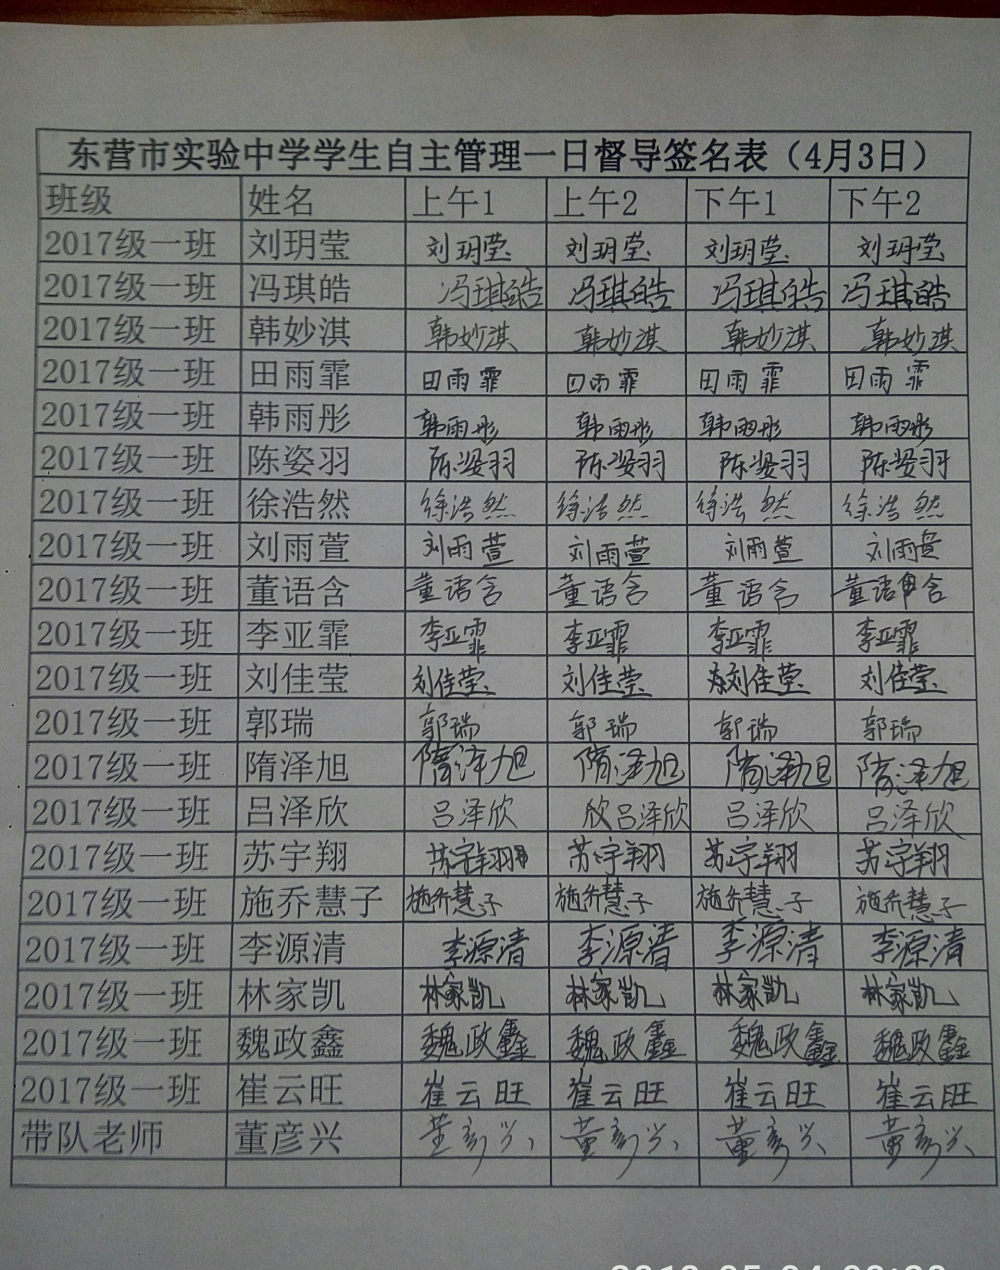 东营市实验中学学生自主管理一日督导签名表（4月3日）
班级 姓名 上午1 上午2 下午1 下午2
2017级一班 刘玥莹 刘玥莹 刘玥莹 刘玥莹 刘玥莹
2017级一班 冯琪皓 冯琪皓 冯琪皓 冯琪皓 冯琪皓
2017级一班 韩妙淇 韩妙淇 韩妙淇 韩妙淇 韩妙淇
2017级一班 田雨霏 田雨霏 田雨霏 田雨霏 田雨霏
2017级一班 韩雨彤 韩雨彤 韩雨彤 韩雨彤 韩雨彤
2017级一班 陈姿羽 陈姿羽 陈姿羽 陈姿羽 陈姿羽
2017级一班 徐浩然 徐浩然 徐浩然 徐浩然 徐浩然
2017级一班 刘雨萱 刘雨萱 刘雨萱 刘雨萱 刘雨萱
2017级一班 董语含 董语含 董语含 董语含 董语含
2017级一班 李亚霏 李亚霏 李亚霏 李亚霏 李亚霏
2017级一班 刘佳莹 刘佳莹 刘佳莹 刘佳莹 刘佳莹
2017级一班 郭瑞 郭瑞 郭瑞 郭瑞 郭瑞
2017级一班 隋泽旭 隋泽旭 隋泽旭 隋泽旭 隋泽旭
2017级一班 吕泽欣 吕泽欣 欣吕泽欣 吕泽欣 吕泽欣
2017级一班 苏宇翔 苏宇翔 苏宇翔 苏宇翔 苏宇翔
2017级一班 施乔慧子 施乔慧子 施乔慧子 施乔慧子 施乔慧子
2017级一班 李源清 李源清 李源清 李源清 李源清
2017级一班 林家凯 林家凯 林家凯 林家凯 林家凯
2017级一班 魏政鑫 魏政鑫 魏政鑫 魏政鑫 魏政鑫
2017级一班 崔云旺 崔云旺 崔云旺 崔云旺 崔云旺
带队老师 董彦兴 董彦兴 董彦兴 董彦兴 董彦兴